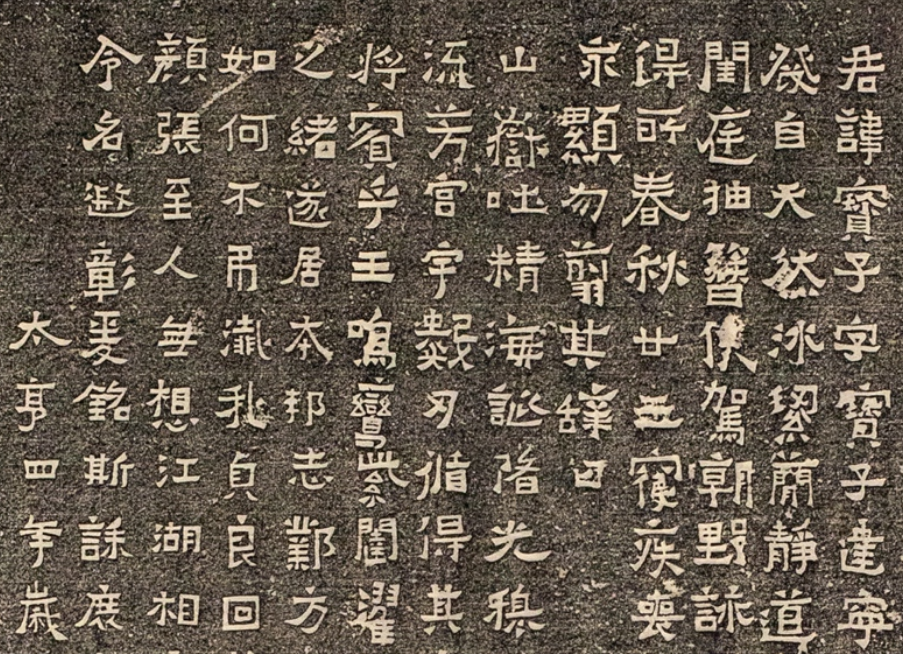 君諱寶子字寶子建寧
發自天然冰絜蕳靜道
閨庭抽簪俟駕朝野詠
得所春秋廿五寢疾喪
永顯勿翦其辭曰
山嶽吐精海誕陼光穆
流芳宮宇數刃循得其
將賓乎王鳴鸞紫闥濯
之緒遂居本邦志鄴方
如何不弔殲我貞良回
顏張至人無想江湖相
令名遐彰爰銘斯誄庶
太亨四年歲